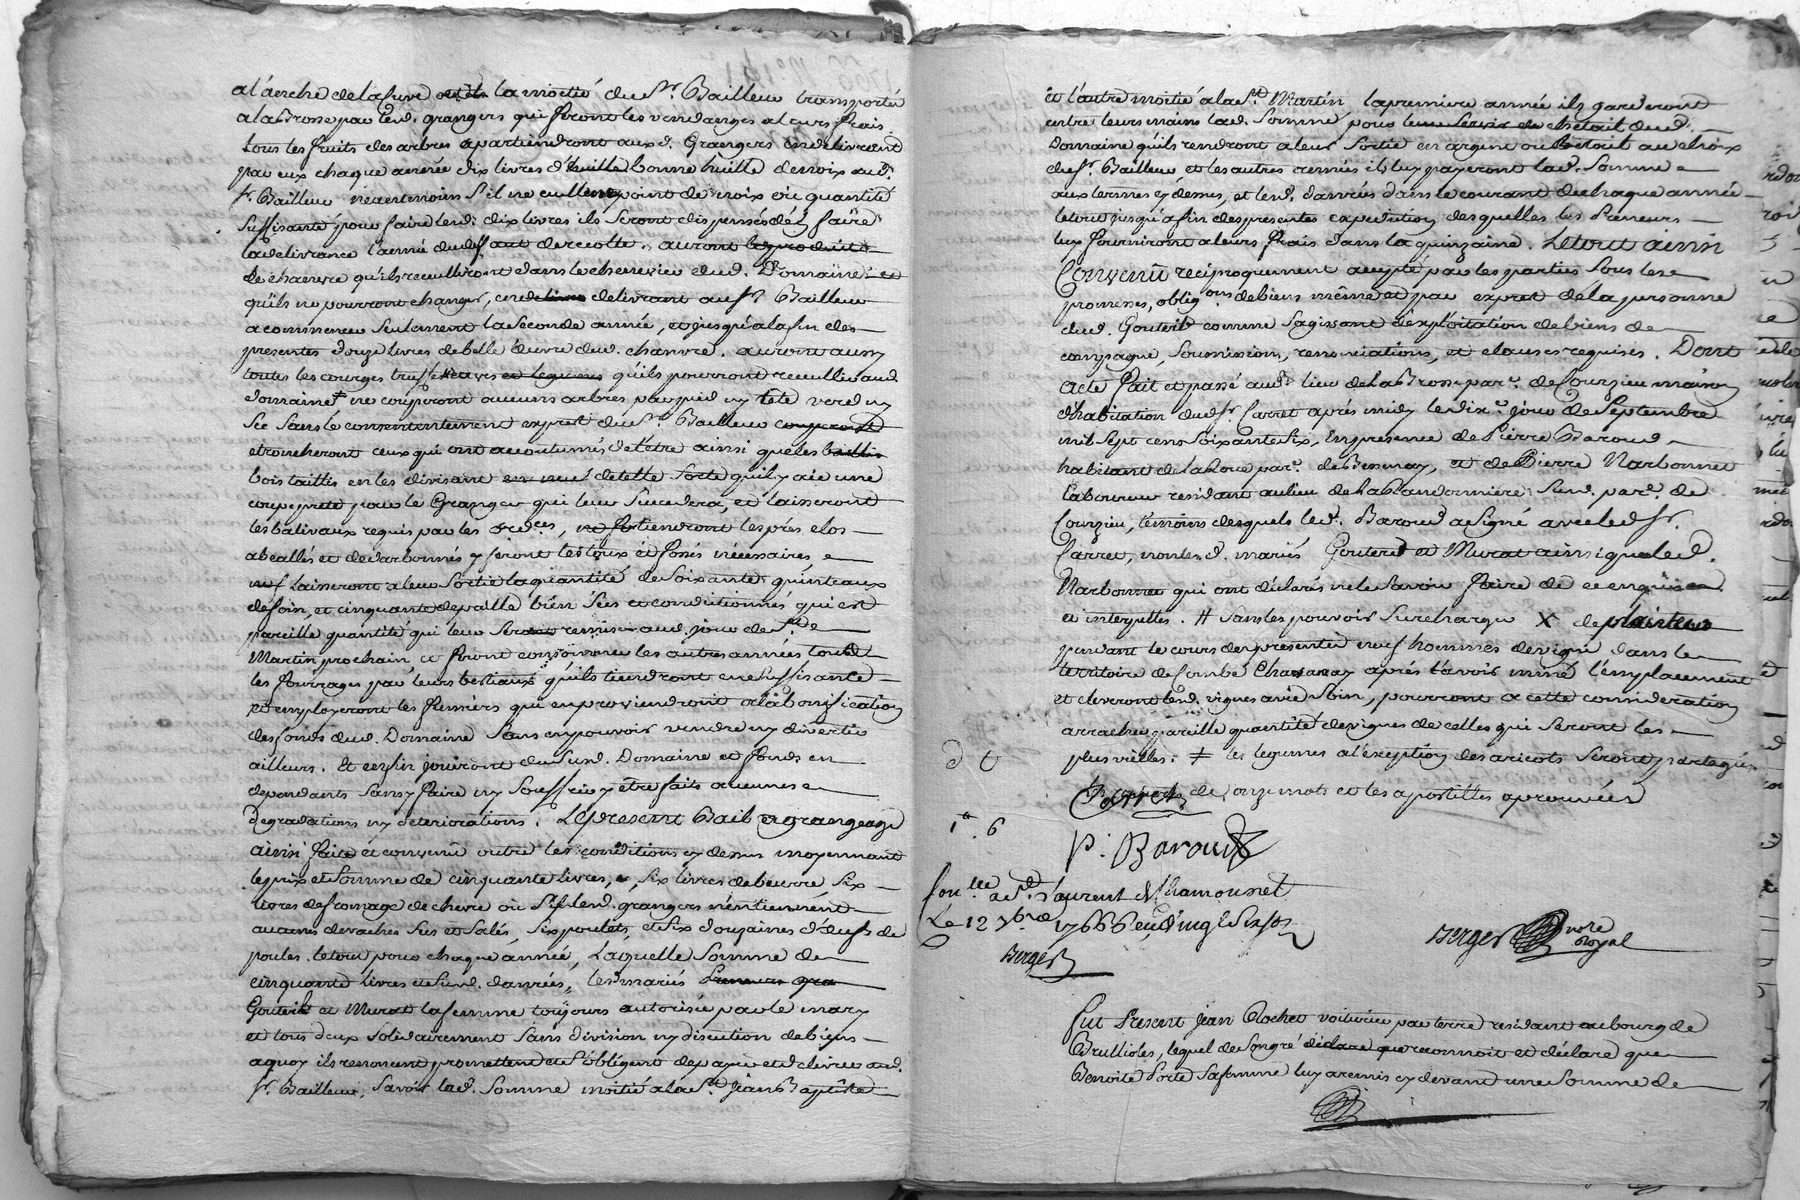 a l'aerche de la cuve et la moctié du Sr. Bailleur transportée
a la Brosse par lesd. grangers qui feront les vendanges a leurs frais,
tous les fruits des arbres apartiendront auxd. Grangers en delivrant
par eux chaque année dix livres d'huille bonne huille de noix aud.
Sr. Bailleur neantmoins s'il ne cullent point de noix où quantité
suffisante pour faire lesd. dix livres ils seront dispensés d'en faire
la delivrance l'année dud. deffaut de recolte, auront le produit
de chaenvre qu'ils recuilliront dans le chenevier dud. Domaine et
qu'ils ne pourront changer, en delivrant au Sr. Bailleur
a commencer seulement la seconde année, et jusqu'a la fin des
presentes douze livres de belle œuvre dud. chanvre. auront aussy
toutes les courges truffes raves et legumes qu'ils pourront recuillir aud.
domaine ≠ ne couperont aucuns arbres par pied ny tête verd ny
sec sans le consentement exprès du Sr. Bailleur couperont
etroncheront ceux qui ont accoutumés de l'être ainsi que les baillis
bois taillis en les divisant en neuf de telle sorte qu'il y aie une
coupe prete pour le Granger qui leur succedera, et laisseront
les balivaux requis par les ordces, tiendront les prés clos
abeallés et dedarbonnés y feront les toux et fossés nécessaires
laisseront a leur sortie la quantité de soixante quinteaux
de foin, et cinquante de paille bien secs et conditionnés qui est
pareille quantité qui leur sera remise aud. jour de St.
Martin prochain et feront consommer les autres années tous
les fourrages par leurs bestiaux qu'ils tiendront en suffisance
et employeront les fumiers qui en proviendront a la bonification
des fonds dud. Domaine sans en pouvoir vendre ny divertir
ailleurs. Et enfin jouiront du susd. Domaine et fonds en
dependants sans y faire ny souffrir y être faits aucunes
degradations ny deteriorations. Le present Bail a grangeage
ainsi faite et convenu outre les conditions cy dessus moyennant
le prix et somme de cinquante livres, six livres de beurre six
livres de fromage de chevre où s'ils lesd. grangers n'en tiennent
aucunes de vaches secs et salés, six poulets, et six douzaines d'œufs de
poules. le tout pour chaque année, Laquelle somme de
cinquante livres et susd. danrées, lesd. mariés
Gouteil et Murat la femme toujours autorisée par le mary
et tous deux solidairement sans division ny discution de biens
a quoy ils renoncent promettent et s'obligent de payer et delivrer aud.
Sr. Bailleur, Savoir lad. somme moitié a la St. Jean Baptiste
et l'autre moitié a la St. Martin la premiere année ils garderont
entre leurs mains lad. somme pour bétail dud.
Domaine qu'ils rendront a leur sortie en argent où bétail au choix
du Sr. Bailleur et les autres années ils luy payeront lad. somme
aux termes cy dessus, et lesd. danrées dans le courant de chaque année
le tout jusqu'a fin des presentes expedution desquelles les Preneurs
luy fourniront a leurs frais dans la quinzaine. Le tout ainsi
Convenu reciproquement accepté par les parties sous les
promesses, obligons de biens même et par exprès de la personne
dud. Gouteil comme s'agissant d'exploitation de biens de
campagne, soumissions, renonciations, et clauses requises. Dont
Acte Fait et passé audt. lieu de la Brosse par. de Courzieu maison
d'habitation dud. Sr. Carret après midy le dix. jour de Septembre
mil sept cens soixante six, En presence de Pierre Baroud
habitant de la Roue par. de Bessenay, et de Pierre Narbonnet
laboureur residant au lieu de la Randonniere susd. par. de
Courzieu, témoins desquels led. Baroud a signé avec led. Sr.
Carret, non lesd. mariés Gouteil et Murat ainsi que led.
Narbonnet qui ont déclarés ne le savoir faire de ce enquis
et interpellés. # sans les pouvoir surcharger X de planter
pendant le cours des presentes neuf hommes de vigne dans le
territoire de Combe Chavanay après l'avoir miné l'emplacement
et eleveront lesd. vignes avec soin, pourront a cette consideration
arracher pareille quantité de vignes de celles qui seront les
plus vielles. ≠ les legumes a l'exception des aricots seront partagés
de onze mots et les apostilles aprouvées
Carret
P. Baroud
Conlle. a St. Laurent de Chamousset
Le 12 7bre 1766
Berger
Berger nore Royal
Fut Present Jean Clochet voiturier par terre residant au bourg de
Brullioles, lequel de son gré declare que reconnoit et déclare que
Benoite Porte sa femme luy a remis cy devant une somme de